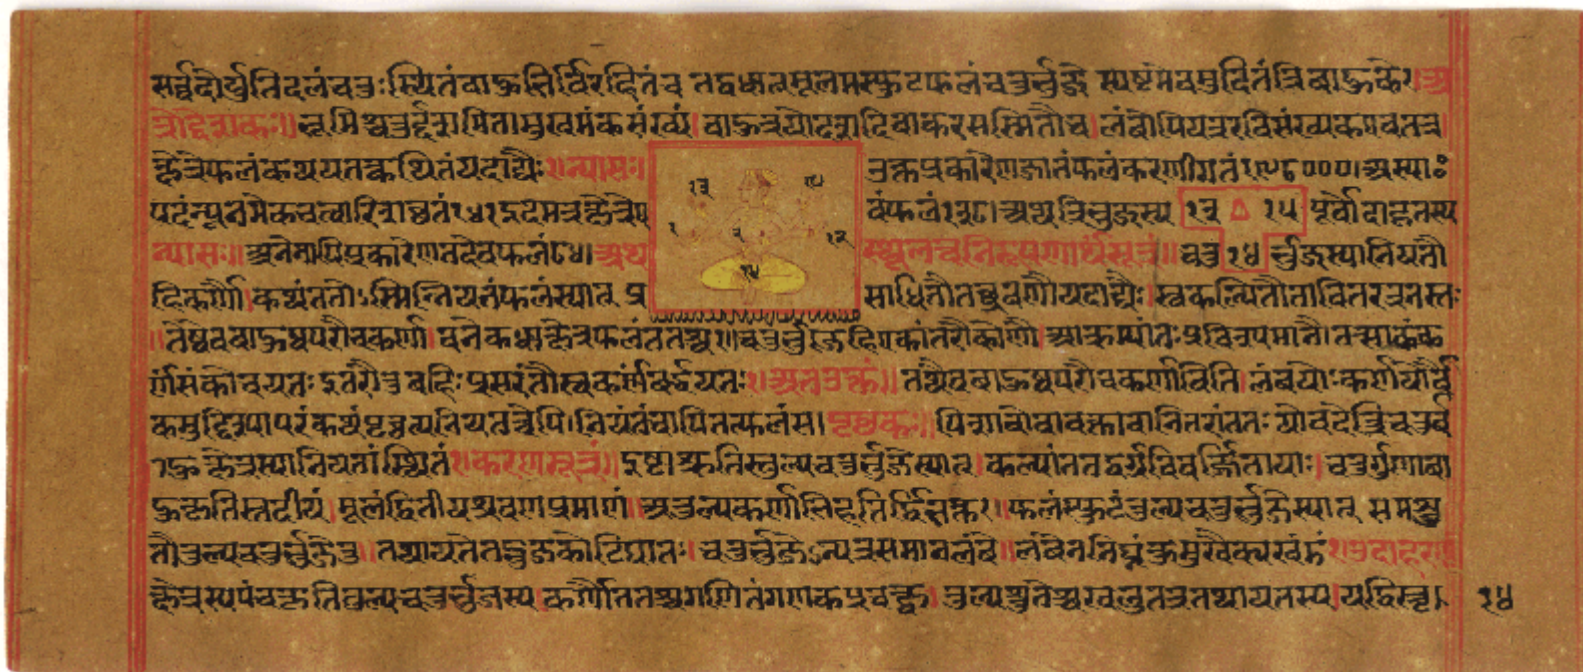 सर्वदोर्युतिदलंचतुःस्थितंबाहुभिर्विरहितंच तद्वधात्मूलमस्फुटफलंचतुर्भुजे स्पष्टमेवमुदितंत्रिबाहुके।अ
त्रोद्देशकः॥भूमिश्चतुर्द्दशमितामुखमंकसंख्यं बाहूत्रयोदशदिवाकरसंमितौच।लंबोपियत्ररविसंख्यकएवतत्र
क्षेत्रेफलंकथययत्कथितंयदाद्यैः।न्यासः। उक्तप्रकारेणजातंफलंकरणीगतं१९८०००।अस्याः
पदंन्यूनमेकचत्वारिंशच्छतं१४१इदमत्रक्षेत्रेए १३ १५ वंफलं१३८।अथत्रिभुजस्य १३ १५ पूर्वोदाहृतस्य
न्यासः॥अनेनापिप्रकारेणतदेवफलं८४।अथ १२ १४ स्थूलत्वनिरूपणार्थंसूत्रं॥चतु १४ र्भुजस्यानियतौ
हिकर्णौ।कथंततोऽस्मिन्नियतंफलंस्यात् प्र साधितौतच्छ्रवणौयदाद्यैः।स्वकल्पितौतावितरत्रनस्तः
॥तेष्वेवबाहुष्वपरौचकर्णा।वनेकधाक्षेत्रफलंततश्च॥चतुर्भुजेहिएकांतरौकोणौ।आक्रम्यांतःप्रविश्यमानौ।
र्णंसंकोचयतः इतरौतुबहिःप्रसरंतौस्वकर्णंवर्द्धयतः।अतउक्तं॥तेष्वेवबाहुष्वपरौचकर्णाविति।लंबयोःकर्णयोर्वै
कमुद्दिश्यापरंकथंपृच्छत्यनियतत्वेपि।नियतंचापितत्फलंस।पृच्छकः॥पिशाचोवावक्तावानितरांततः
हुक्षेत्रस्यानियतांस्थितिं।करणसूत्रं॥इष्टाश्रुतिस्तुल्यचतुर्भुजेस्यात्।कल्पांततद्वर्गविवर्ज्जितायाः।चतुर्गुणाबा
हुकृतिस्तदीयं।मूलंद्वितीयश्रवणप्रमाणं।अतुल्यकर्णाभिहतिर्द्विभक्ता।फलंस्फुटंतुल्यचतुर्भुजेस्यात् समश्रु
तौतुल्यचतुर्भुजेतु॥तथायतेतद्भुजकोटिघातः।चतुर्भुजेऽन्यत्रसमानलंबे॥लंबेननिघ्नंकुमुखैक्यखंडं।उदाहरणं
क्षेत्रस्यपंचकृतितुल्यचतुर्भुजस्य।कर्णौततश्चगणितंगणकप्रचक्ष्व। तुल्यश्रुतेश्चखलुतत्रतथायतस्य।यद्विस्तृ। १४